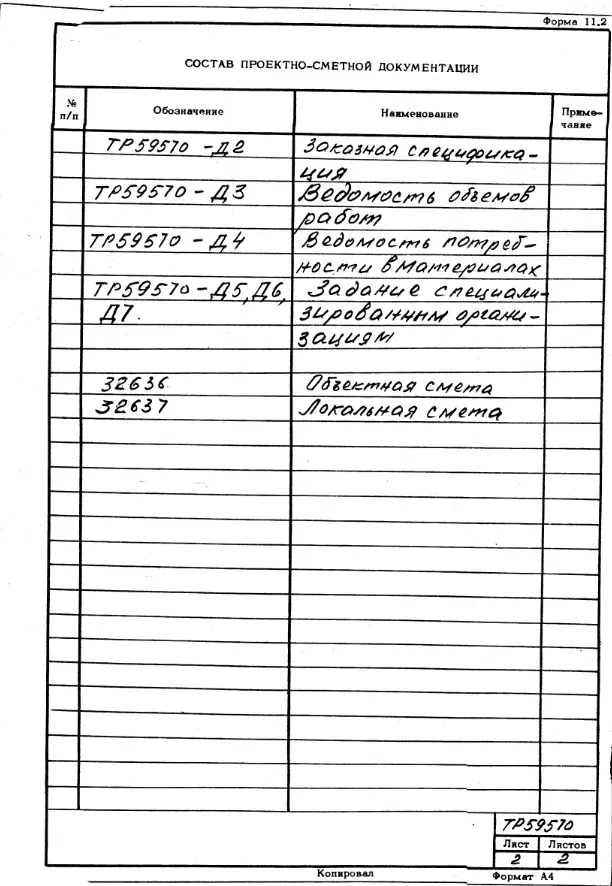 Форма 11.2
СОСТАВ ПРОЕКТНО-СМЕТНОЙ ДОКУМЕНТАЦИИ
№ п/п Обозначение Наименование Приме- чание
ТР59570 -Д2 Заказная специфика-
ция
ТР59570 - Д3 Ведомость объемов
работ
ТР59570 - Д4 Ведомость потреб-
ности в материалах
ТР59570 - Д5, Д6, Задание специали-
Д7. зированным органи-
зациям
32636 Объектная смета
32637 Локальная смета
ТР59570
Лист Листов
2 2
Копировал Формат А4